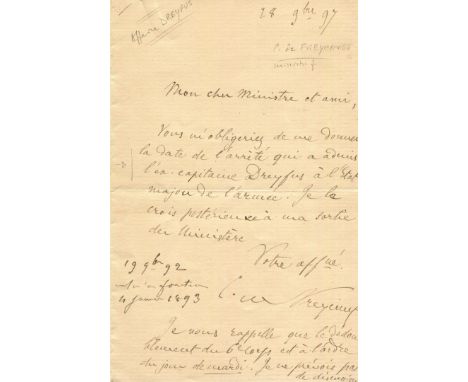 Affaire DREYFUS
28 9bre 97
C. de FREYCINET
Mon cher Ministre et ami,
Vous m'obligeriez de me donner
la date de l'arrêté qui a admis
l'ex-capitaine Dreyfus à l'Etat
major de l'armée. Je la
crois postérieure à ma sortie
du Ministère
Votre affné.
19 9bre 92
4 janvier 1893
C. de Freycinet
Je vous rappelle que le dédou
blement du 6e corps est à l'ordre
du jour de mardi. Je ne prévois pas
de discussion